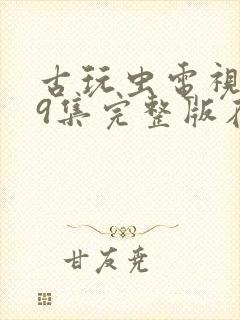 古玩虫电視
9集完整版在
甘友尧